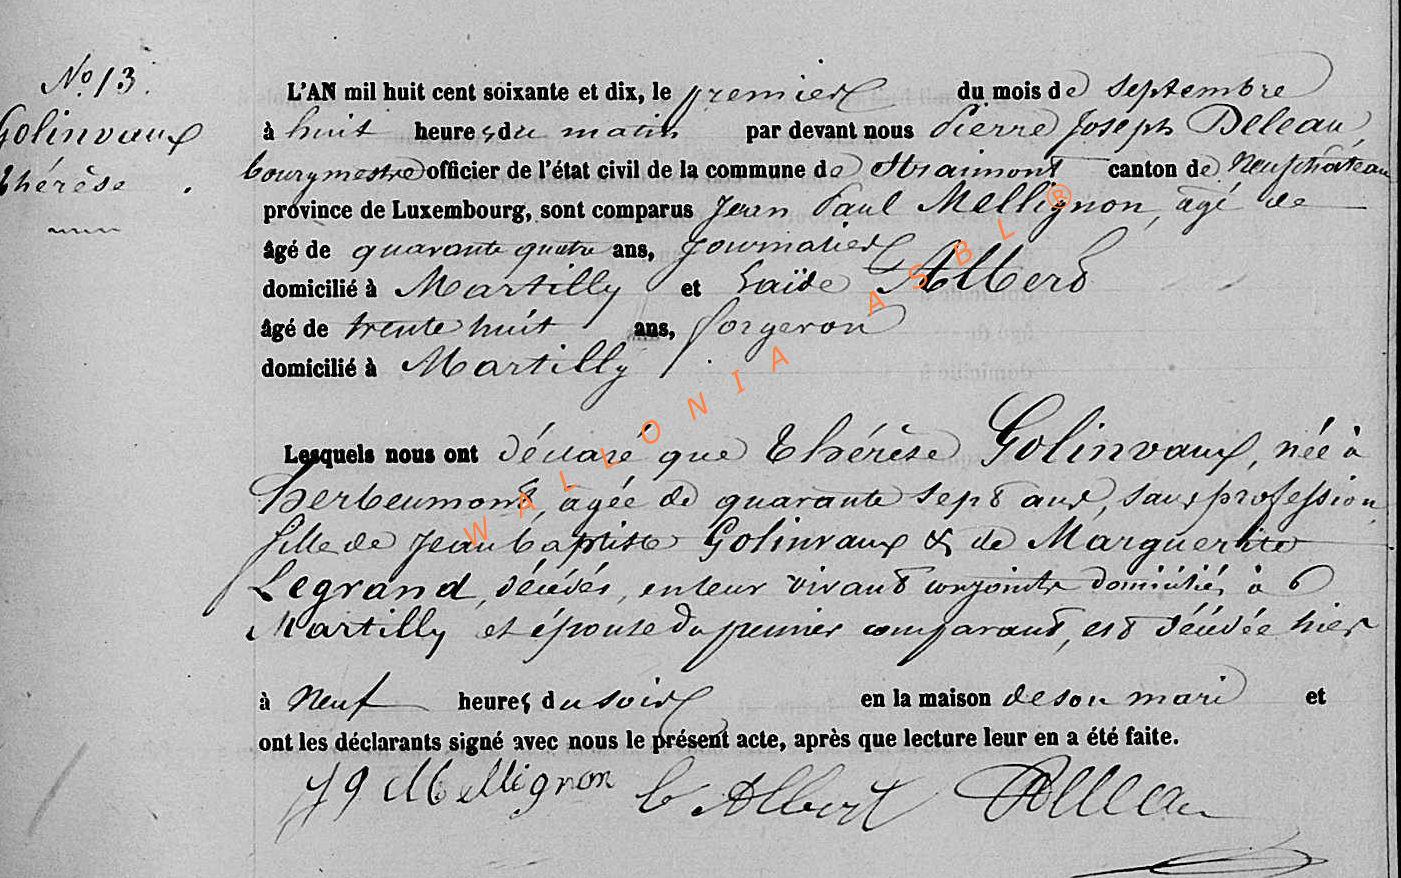 No 13.
Golinvaux
Thérèse .
L'AN mil huit cent soixante et dix, le premier du mois de Septembre
à huit heures du matin par devant nous Pierre Joseph Deleau,
bourgmestre officier de l'état civil de la commune de Straimont canton de Neufchâteau
province de Luxembourg, sont comparus Jean Paul Mellignon, âgé de
âgé de quarante quatre ans, journalier
domicilié à Martilly et Albert
âgé de trente huit ans, forgeron
domicilié à Martilly.
Lesquels nous ont déclaré que Thérèse Golinvaux, née à
herbeumont, âgée de quarante sept ans, sans profession,
fille de Jean baptiste Golinvaux & de Marguerite
Legrand, décédés, en leur vivant conjoints domiciliés à
Martilly et épouse du premier comparant, est décédée hier
à Neuf heures du soir en la maison de son mari et
ont les déclarants signé avec nous le présent acte, après que lecture leur en a été faite.
Mellignon Albert Deleau
WALLONIA ASBL ®